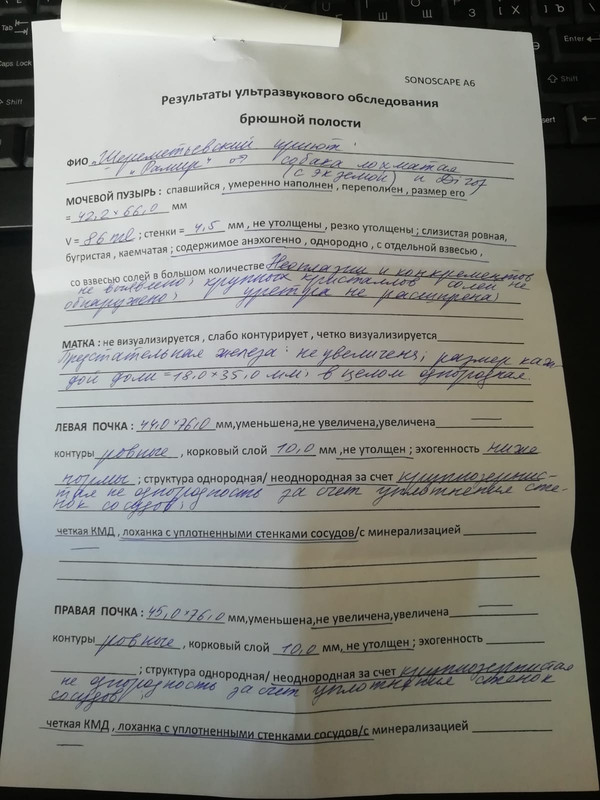 SONOSCAPE A6
Результаты ультразвукового обследования
брюшной полости
ФИО "Шереметьевский приют"
"Рамир" собака лохматая
(с экземой)
МОЧЕВОЙ ПУЗЫРЬ : спавшийся , умеренно наполнен , переполнен , размер его
= 42,0 × 66,0 мм
V = 86 ml ; стенки = 4,5 мм , не утолщены , резко утолщены ; слизистая ровная,
бугристая , каемчатая ; содержимое анэхогенно , однородно , с отдельной взвесью ,
со взвесью солей в большом количестве Неоплазии и конкрементов
не выявлено; крупных кристаллов солей не
обнаружено; уретра не расширена;
МАТКА : не визуализируется , слабо контурирует , четко визуализируется
Предстательная железа: не увеличена; размер каж-
дой доли = 18,0 × 35,0 мм; в целом однородная.
ЛЕВАЯ ПОЧКА : 44,0 × 76,0 мм,уменьшена,не увеличена,увеличена
контуры ровные , корковый слой 10,0 мм ,не утолщен ; эхогенность ниже
нормы ; структура однородная/ неоднородная за счет крупнозернис-
тая не однородность за счет уплотнения сте-
нок сосудов;
четкая КМД , лоханка с уплотненными стенками сосудов/с минерализацией
ПРАВАЯ ПОЧКА : 45,0 × 76,0 мм,уменьшена,не увеличена,увеличена
контуры ровные , корковый слой 10,0 мм, не утолщен ; эхогенность
; структура однородная/ неоднородная за счет крупнозернистая
не однородность за счет уплотнения стенок
сосудов
четкая КМД , лоханка с уплотненными стенками сосудов/с минерализацией